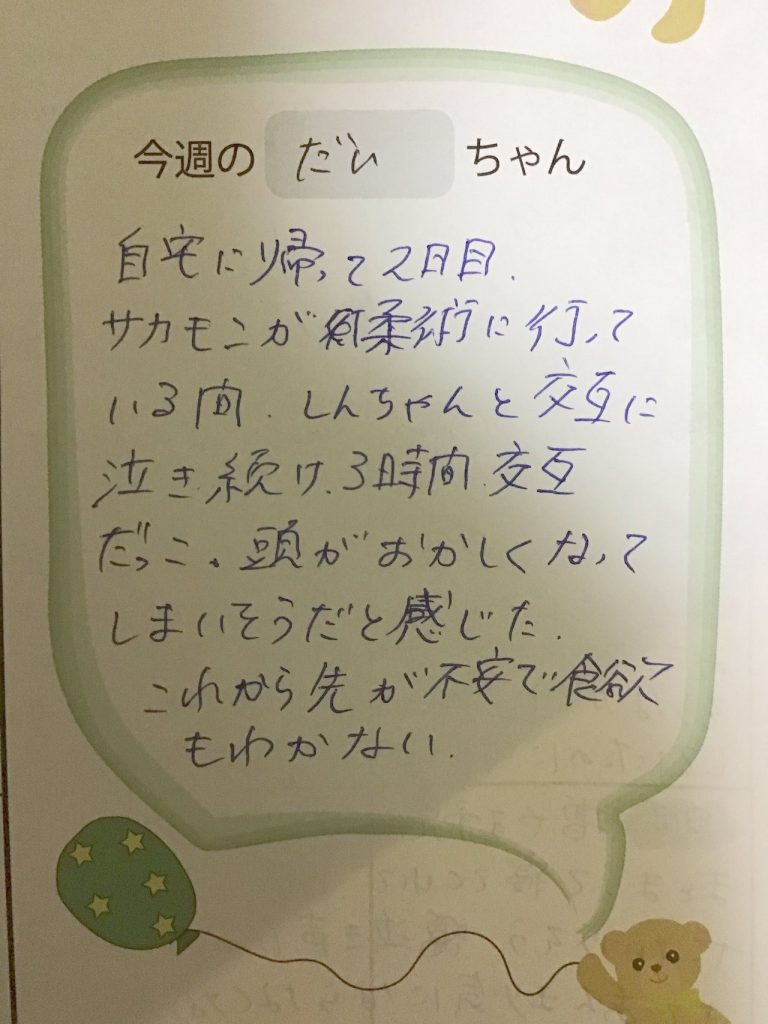 今週の だい ちゃん
自宅に帰って2日目.
サカモニが柔術に行って
いる間. しんちゃんと交互に
泣き続け. 3時間 交互
だっこ。頭がおかしくなって
しまいそうだと感じた.
これから先が不安で食欲
もわかない.